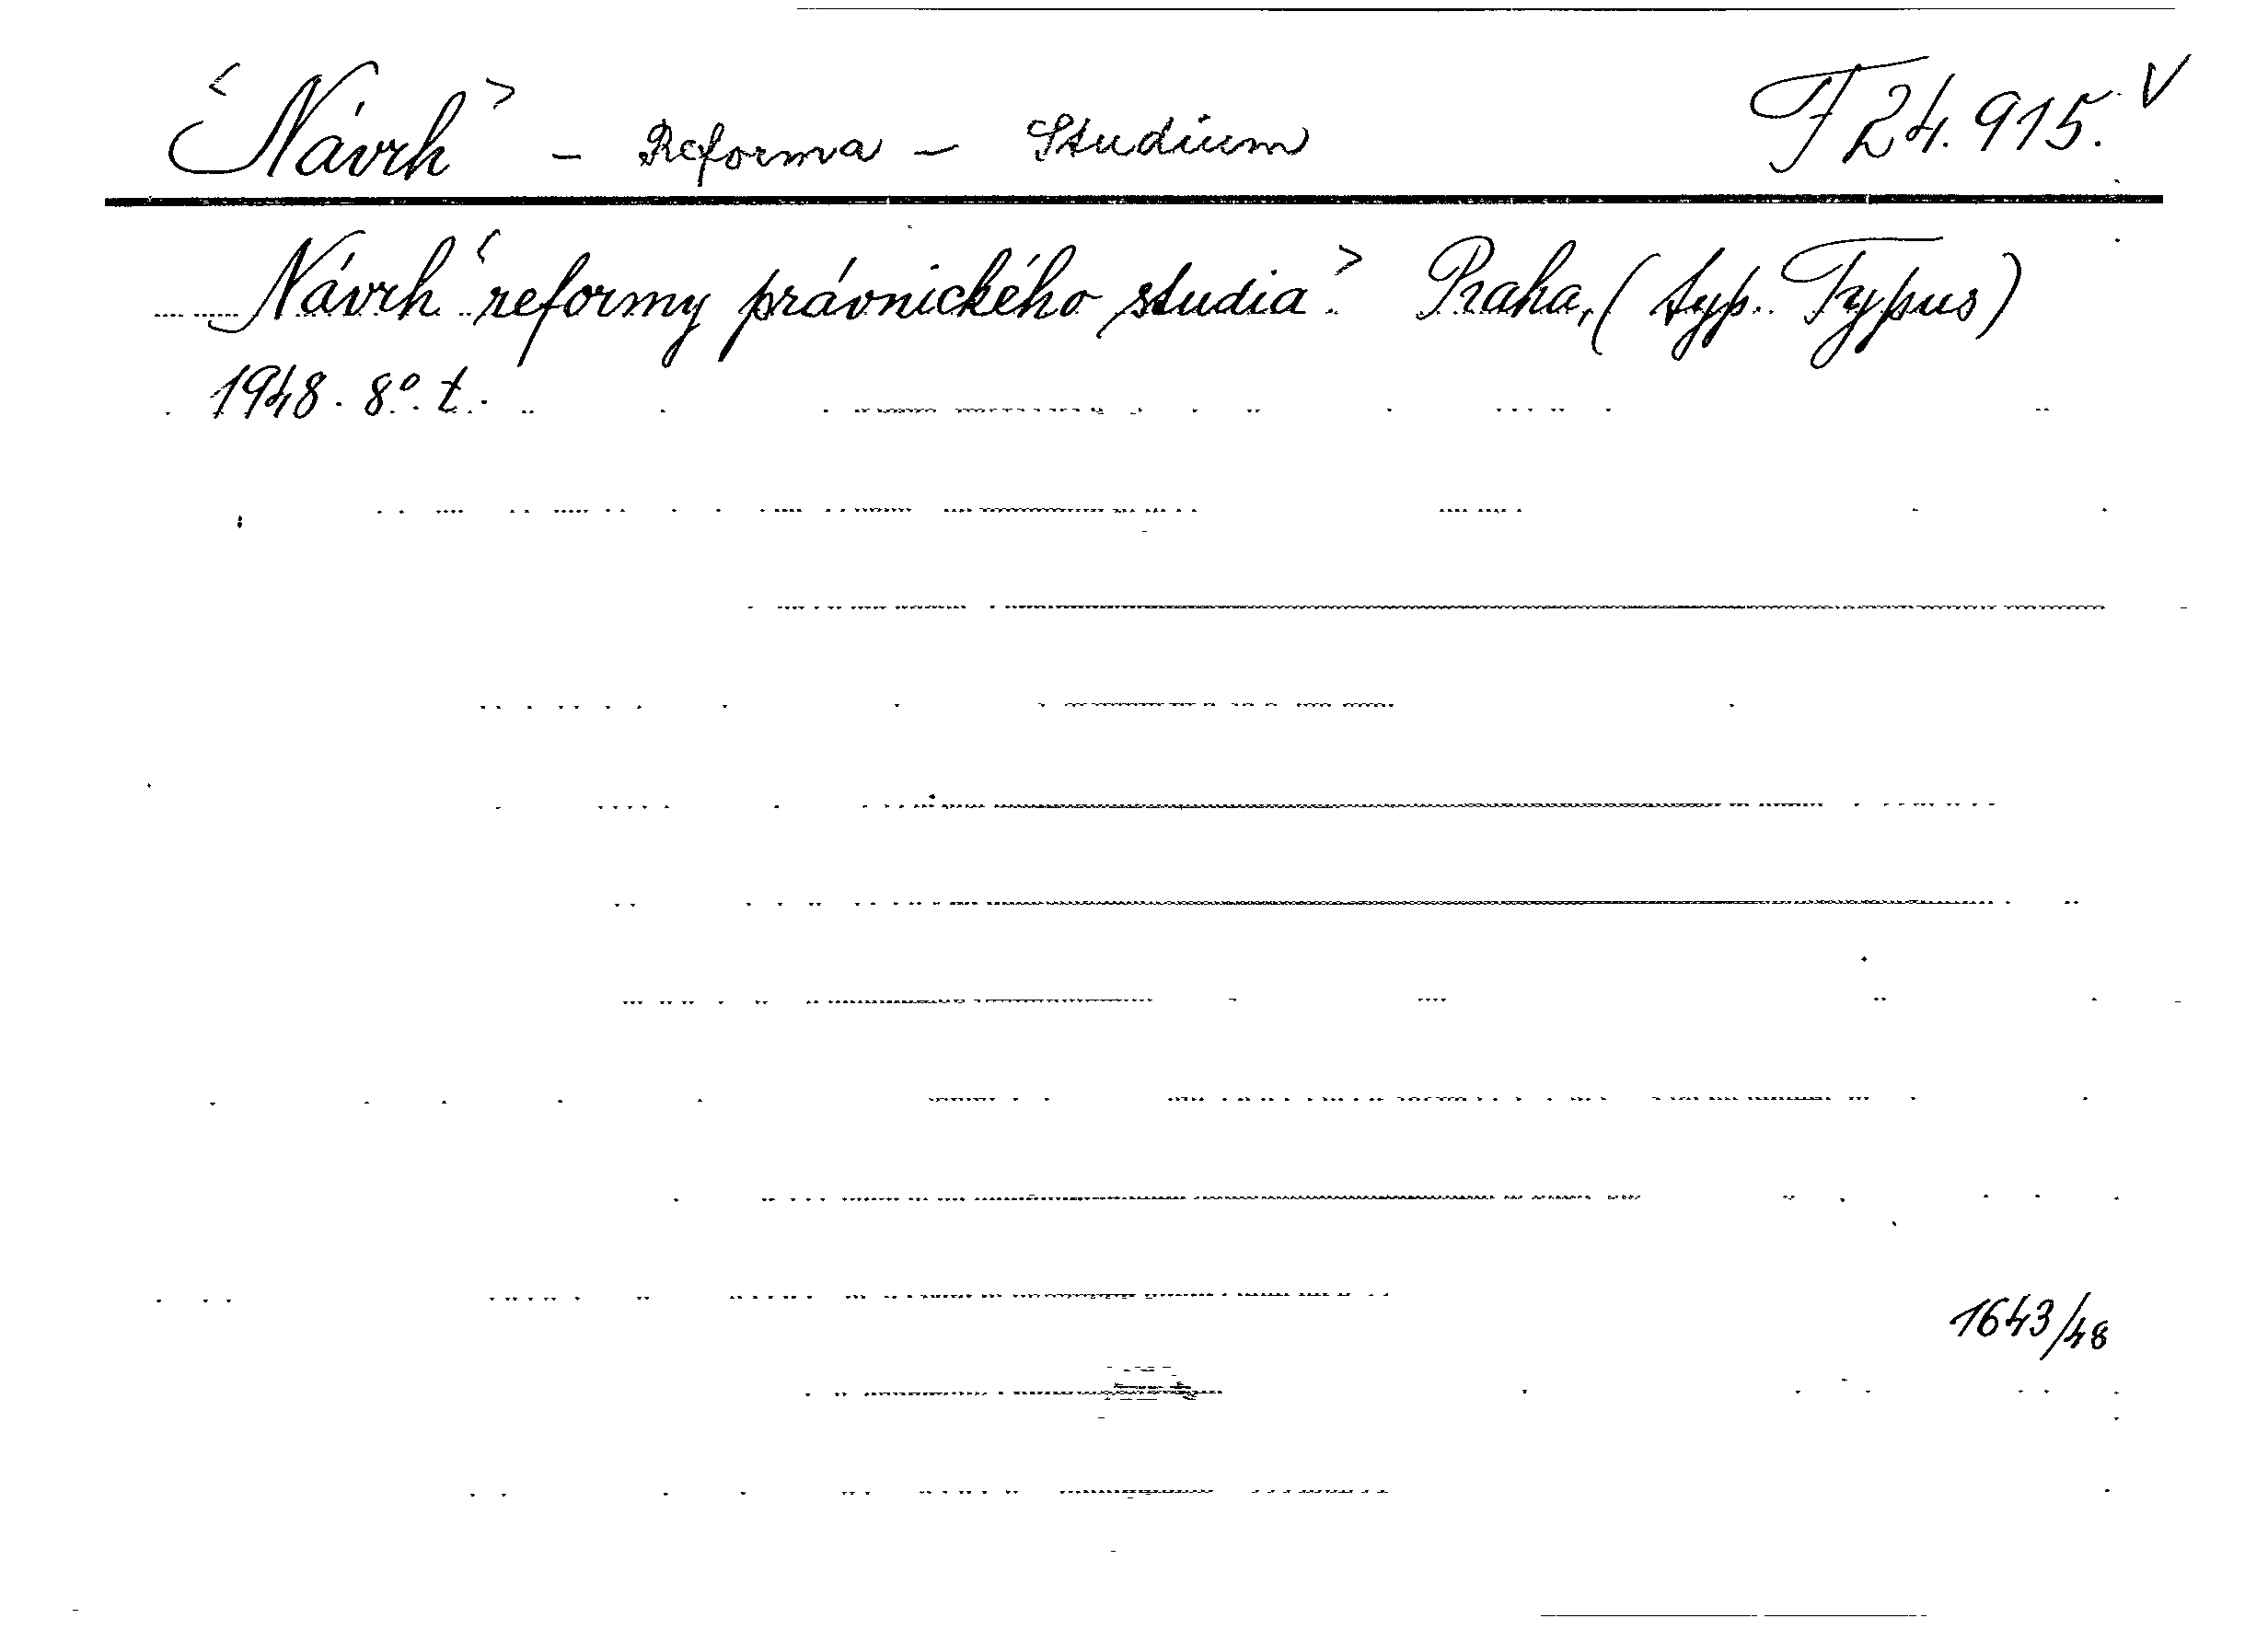 <Návrh> - Reforma - Studium T 24.915. V
Návrh <reformy právnického studia>. Praha, (typ. Typus)
1948. 8°. t.
1643/48